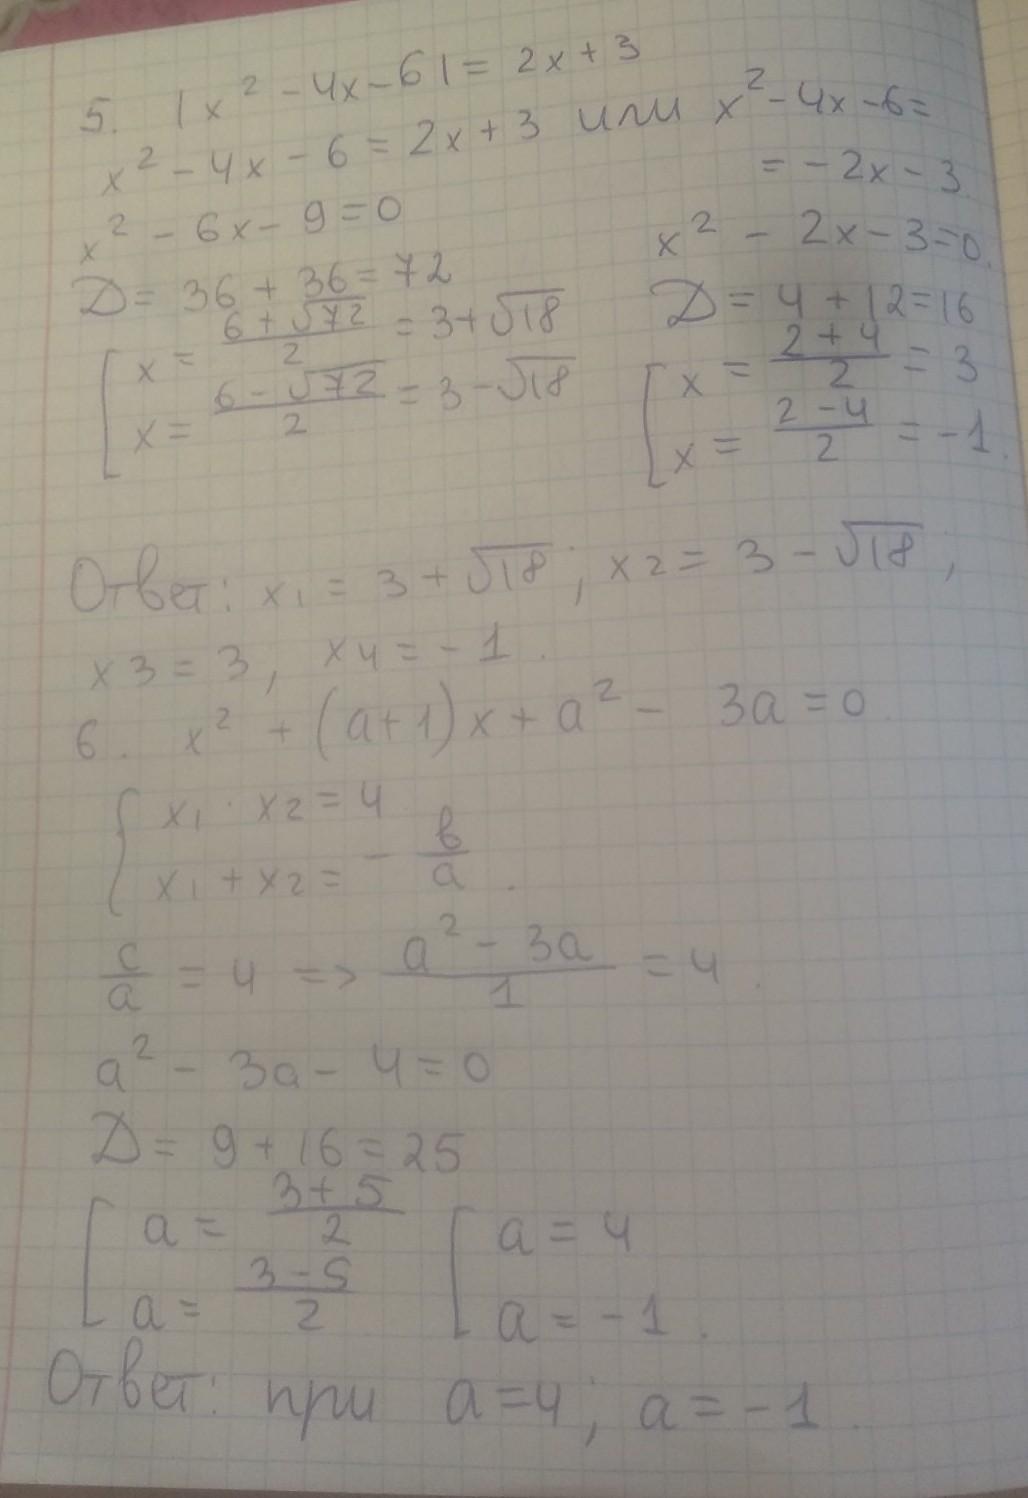 5. |x² - 4x - 6| = 2x + 3
x² - 4x - 6 = 2x + 3 или x² - 4x - 6 =
= - 2x - 3.
x² - 6x - 9 = 0
x² - 2x - 3 = 0.
D = 36 + 36 = 72
D = 4 + 12 = 16
[ x = (6 + √72)/2 = 3 + √18
x = (6 - √72)/2 = 3 - √18
[ x = (2 + 4)/2 = 3
x = (2 - 4)/2 = -1.
Ответ: x₁ = 3 + √18; x₂ = 3 - √18;
x3 = 3, x4 = - 1.
6. x² + (a+1)x + a² - 3a = 0.
{ x₁ · x₂ = 4
x₁ + x₂ = - в/a.
c/a = 4 => (a² - 3a)/1 = 4.
a² - 3a - 4 = 0
D = 9 + 16 = 25
[ a = (3 + 5)/2 [ a = 4
a = (3 - 5)/2 a = -1.
Ответ: при a = 4; a = -1.